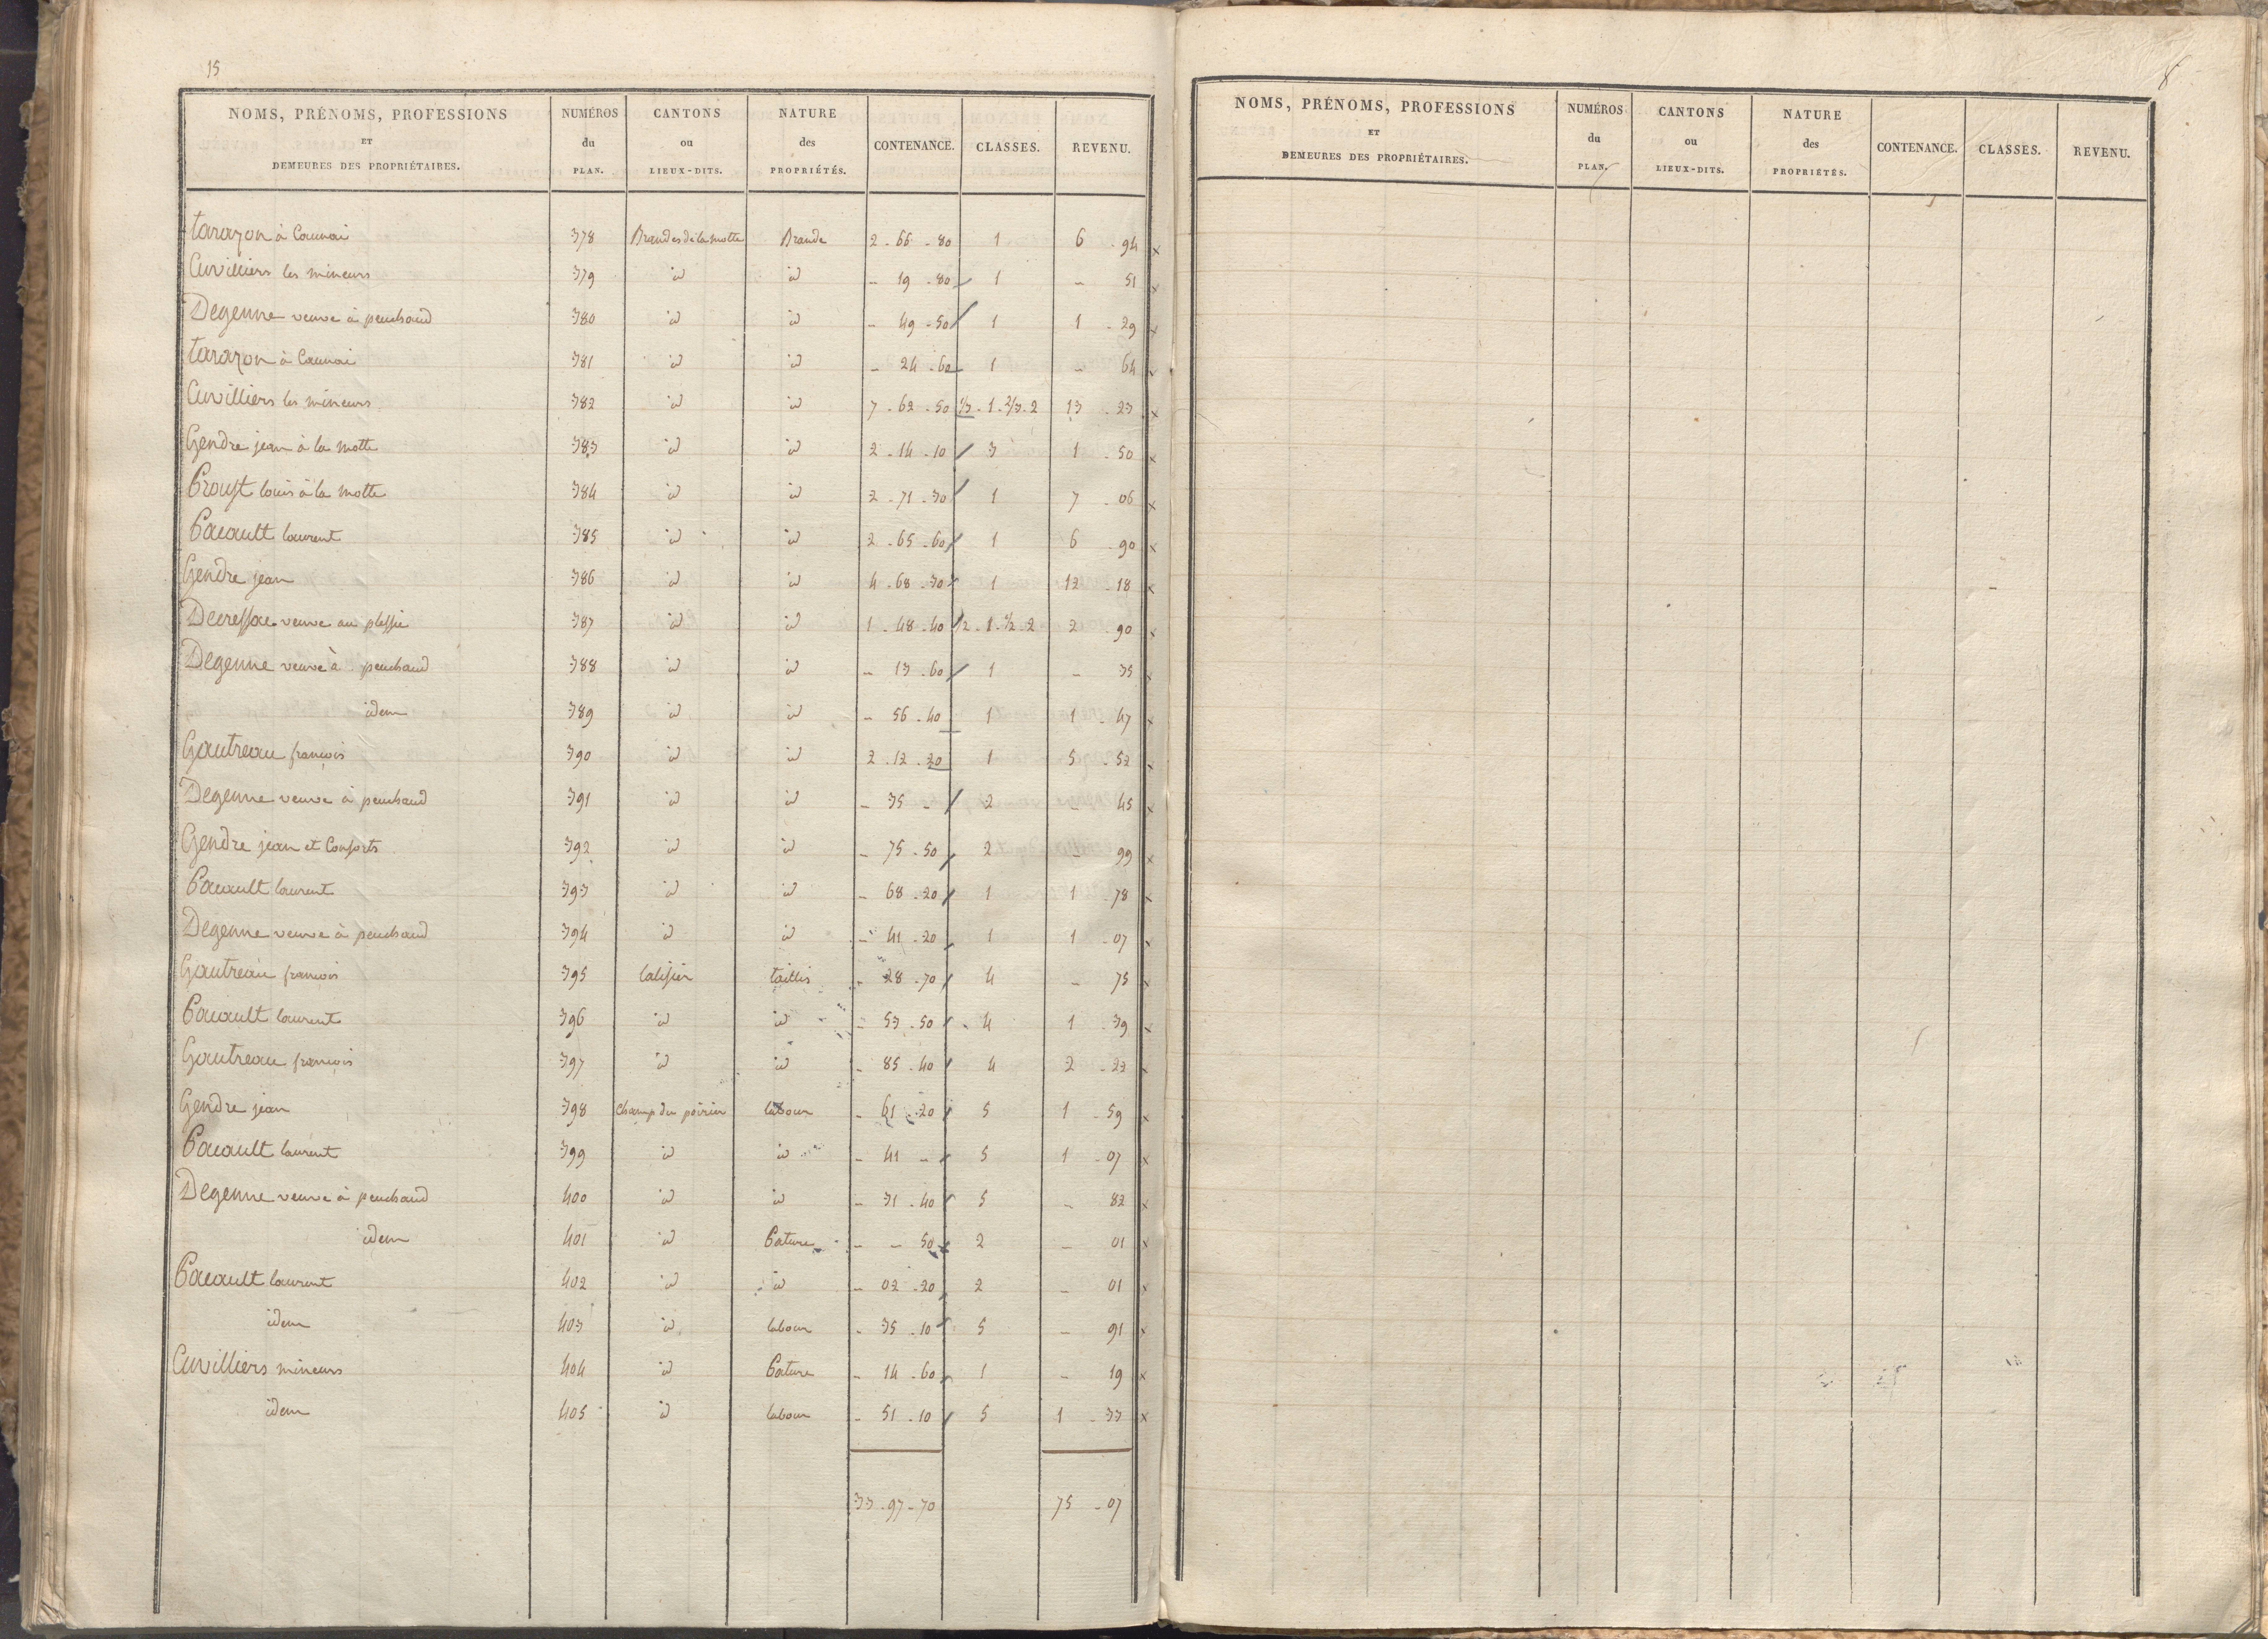 15
NOMS, PRÉNOMS, PROFESSIONS ET DEMEURES DES PROPRIÉTAIRES. NUMÉROS du PLAN. CANTONS ou LIEUX-DITS. NATURE des PROPRIÉTÉS. CONTENANCE. CLASSES. REVENU.
tarazon à Caunai 378 Brandes de la motte Brande 2 - 66 - 80 1 6 - 94 x
Cuvilliers les mineurs 379 id id - 19 - 80 1 - 51 x
Degenne veuve à peuchaud 380 id id - 49 - 50 1 1 - 29 x
tarazon à Caunai 381 id id - 24 - 60 1 - 64 x
Cuvilliers les mineurs 382 id id 7 - 62 - 50 1/3 - 1 - 2/3 - 2 13 - 23 x
Gendre jean à la motte 383 id id 2 - 14 - 10 3 1 - 50 x
Proust louis à la motte 384 id id 2 - 71 - 30 1 7 - 06 x
Pacault laurent 385 id id 2 - 65 - 60 1 6 - 90 x
Gendre jean 386 id id 4 - 68 - 30 1 12 - 18 x
Decressac veuve au plessie 387 id id 1 - 48 - 40 1/2 - 1 - 1/2 - 2 2 - 90 x
Degenne veuve à peuchaud 388 id id - 13 - 60 1 - 35 x
idem 389 id id - 56 - 40 1 1 - 47 x
Gautreau françois 390 id id 2 - 12 - 20 1 5 - 52 x
Degenne veuve à peuchaud 391 id id - 35 - 2 - 45 x
Gendre jean et Consorts 392 id id - 75 - 50 2 - 99 x
Pacault laurent 393 id id - 68 - 20 1 1 - 78 x
Degenne veuve à peuchaud 394 id id - 41 - 20 1 1 - 07 x
Gautreau françois 395 taillis - 28 - 70 4 - 75 x
Pacault laurent 396 id id - 53 - 50 4 1 - 39 x
Gautreau françois 397 id id - 85 - 40 4 2 - 22 x
Gendre jean 398 Champ du poirier labour - 61 - 20 5 1 - 59 x
Pacault laurent 399 id id - 41 - 5 1 - 07 x
Degenne veuve à peuchaud 400 id id - 31 - 40 5 - 82 x
idem 401 id Pature - - 50 2 - 01 x
Pacault laurent 402 id id - 02 - 20 2 - 01 x
idem 403 id labour - 35 - 10 5 - 91 x
Cuvilliers mineurs 404 id Pature - 14 - 60 1 - 19 x
idem 405 id labour - 51 - 10 5 1 - 33 x
33 - 97 - 70 75 - 07
NOMS, PRÉNOMS, PROFESSIONS ET DEMEURES DES PROPRIÉTAIRES. NUMÉROS du PLAN. CANTONS ou LIEUX-DITS. NATURE des PROPRIÉTÉS. CONTENANCE. CLASSES. REVENU.